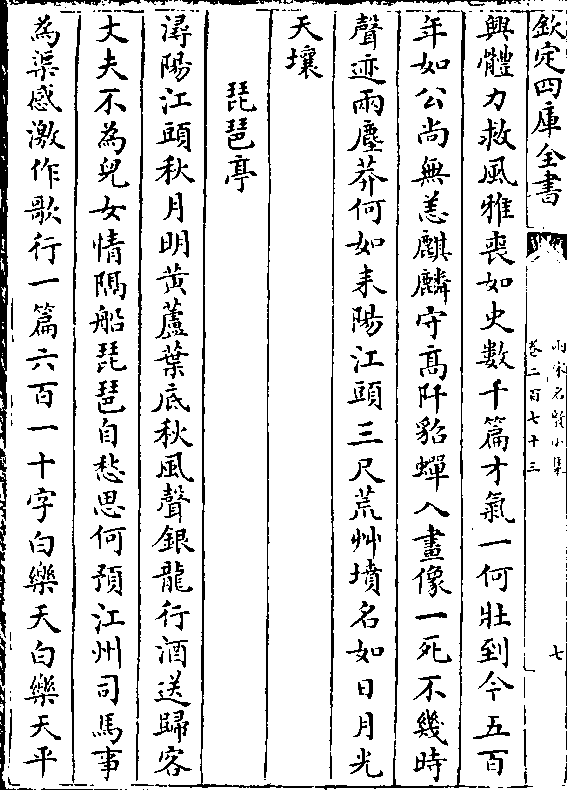 欽定四庫全書
兩宋名賢小集
卷二百七十三
七
興體力救風雅喪如史數千篇才氣一何壯到今五百
年如公尚無恙麒麟守高阡貂蟬入畫像一死不幾時
聲迹兩塵莽何如耒陽江頭三尺荒艸墳名如日月光
天壤
琵琶亭
潯陽江頭秋月明黃蘆葉底秋風聲銀龍行酒送歸客
丈夫不為兒女情隔船琵琶自愁思何預江州司馬事
為渠感激作歌行一篇六百一十字白樂天白樂天平